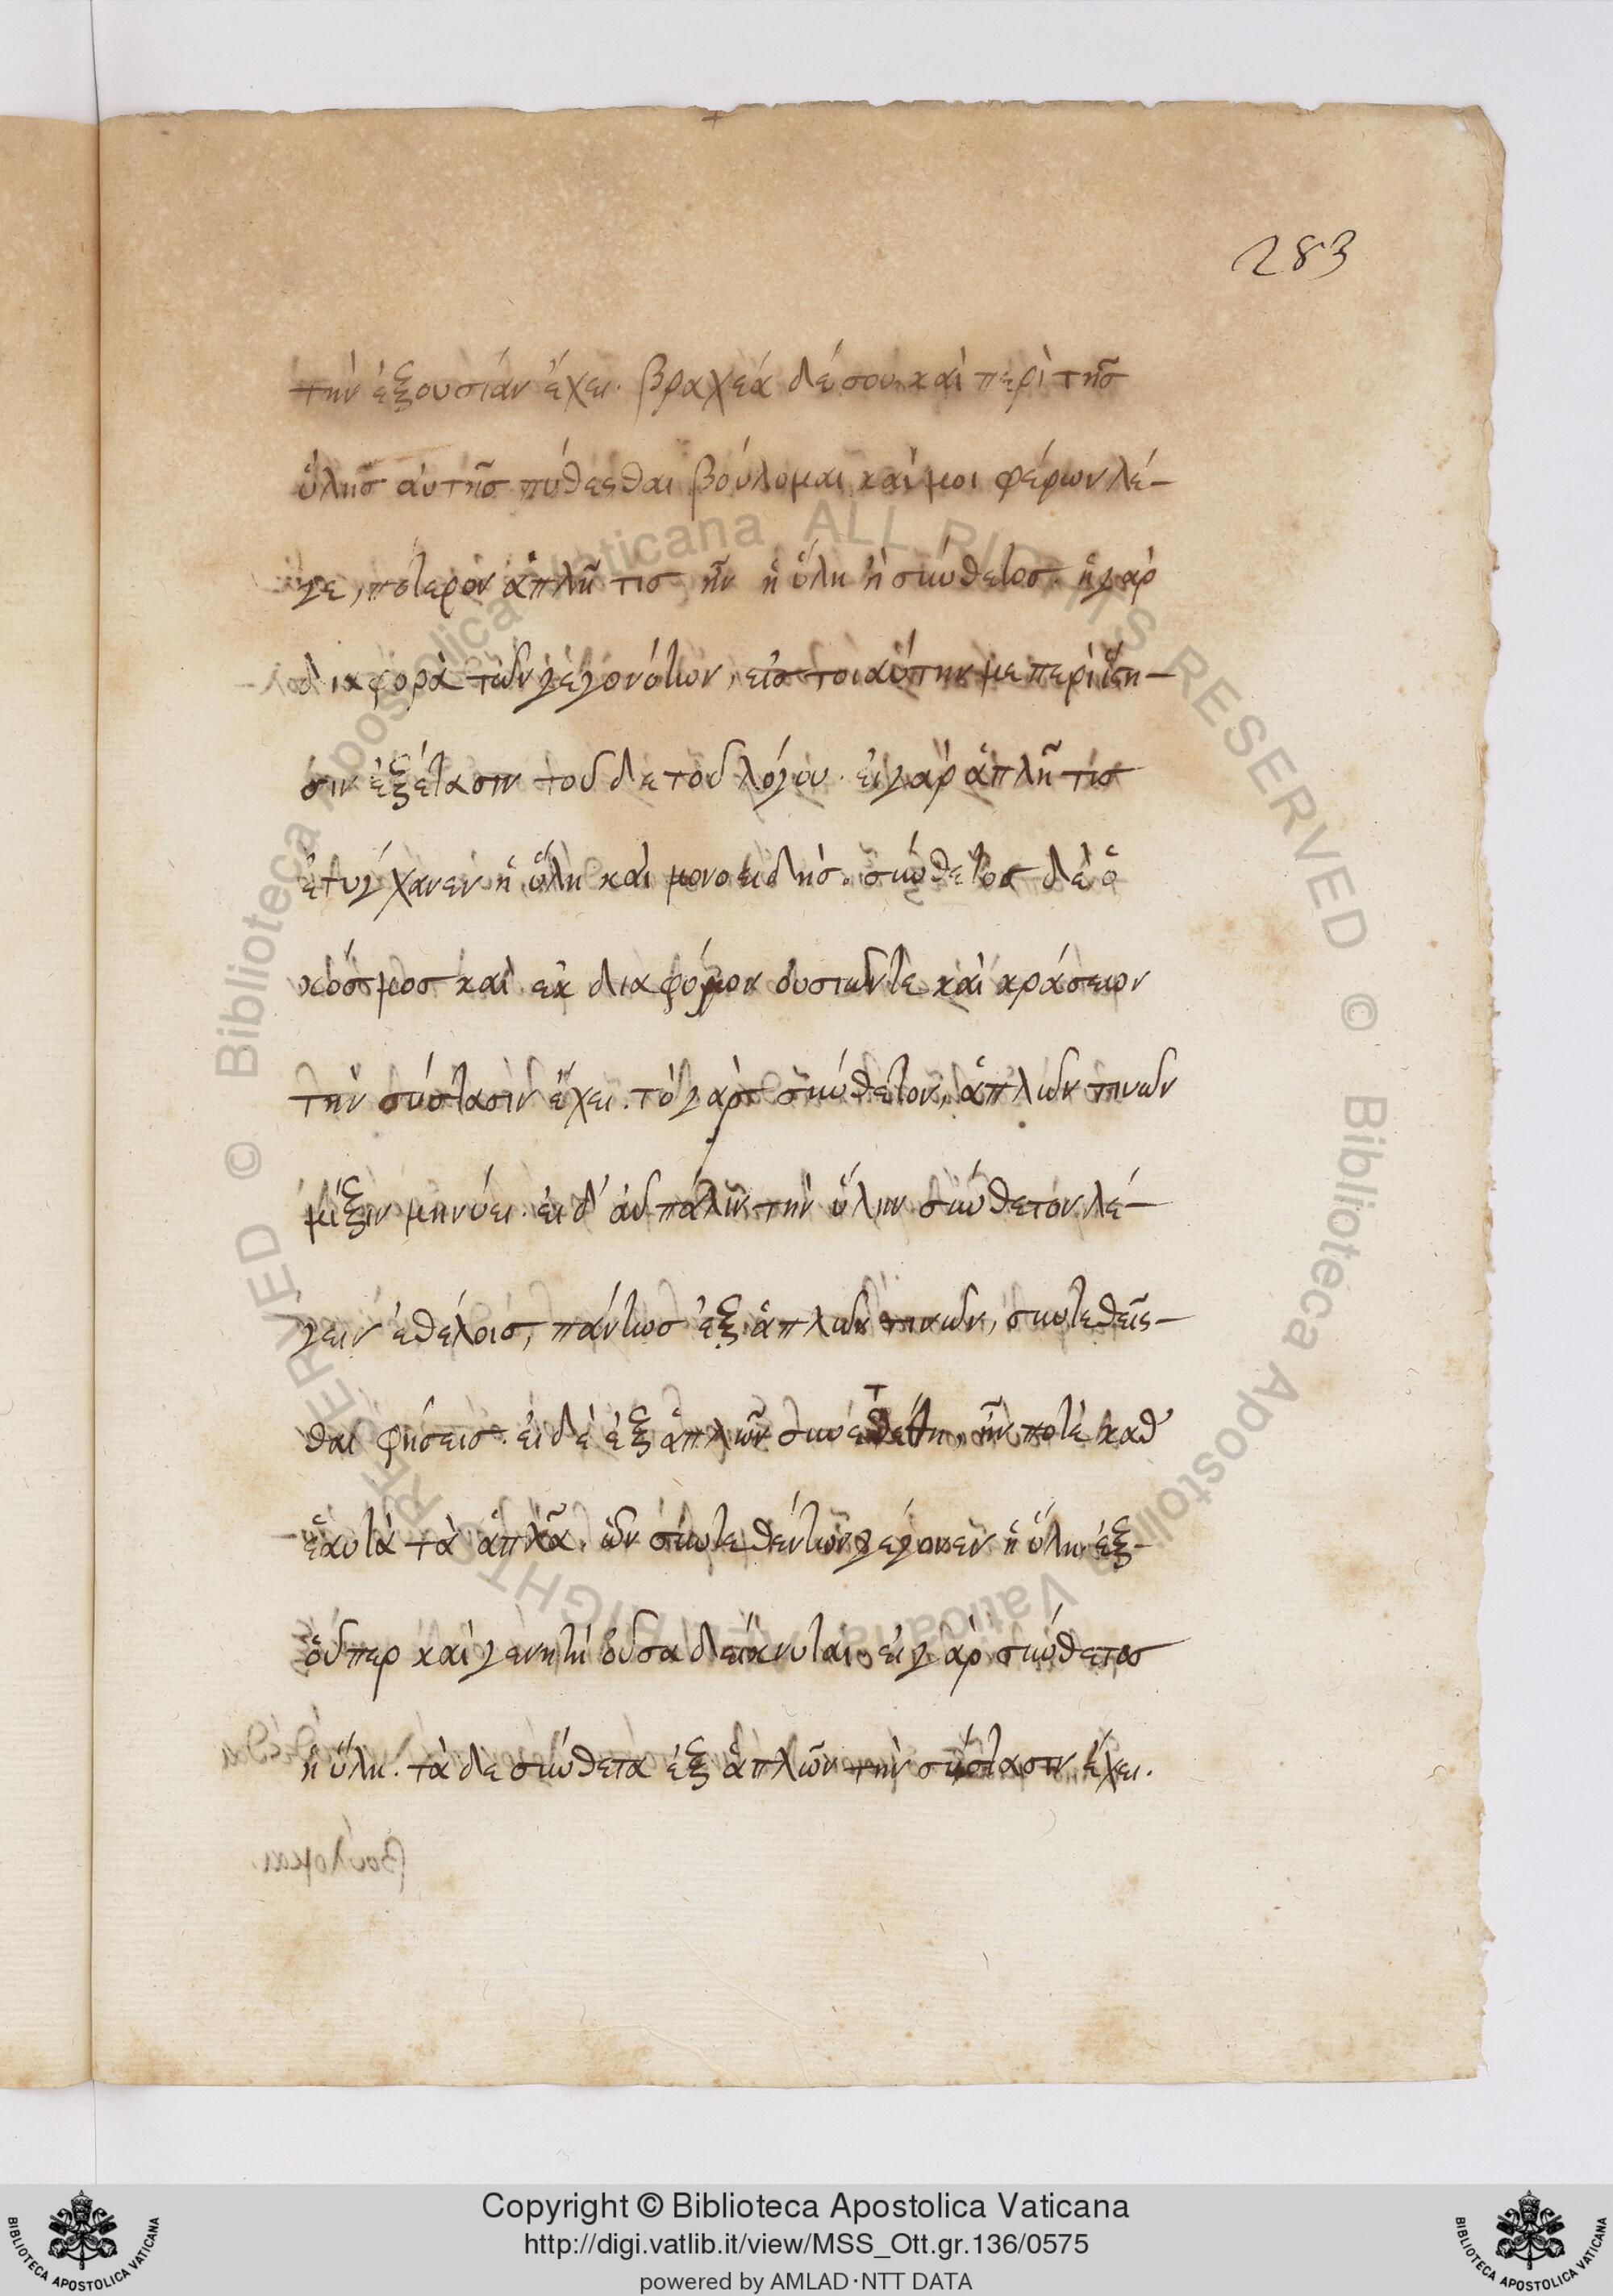 283
τὴν ἐξουσίαν ἔχει. βραχέα δέ σου καὶ περὶ τῆς
ὕλης αὐτῆς πυθέσθαι βούλομαι καί μοι φέρων λέ-
γε, πότερον ἁπλῆ τις ἦν ἡ ὕλη ἢ σύνθετος. ἡ γὰρ
διαφορὰ τῶν γεγονότων, εἰς τοιαύτην με περιίστη-
σιν ἐξέτασιν τοῦδε τοῦ λόγου. εἰ γὰρ ἁπλῆ τις
ἐτύγχανεν ἡ ὕλη καὶ μονοειδής. σύνθετος δὲ ὁ
κόσμος καὶ ἐκ διαφόρων οὐσιῶν τε καὶ κράσεων
τὴν σύστασιν ἔχει. τὸ γὰρ σύνθετον, ἁπλῶν τινῶν
μίξιν μηνύει. εἰ δ' αὖ πάλιν τὴν ὕλην σύνθετον λέ-
γειν ἐθέλοις, πάντως ἐξ ἁπλῶν τινῶν, συντεθεῖσ-
θαι φήσεις. εἰ δὲ ἐξ ἁπλῶν συνετέθη, ἦν ποτὲ καθ'
ἑαυτὰ τὰ ἁπλᾶ. ὧν συντεθέντων γέγονεν ἡ ὕλη. ἐξ-
οὗπερ καὶ γενητὴ οὖσα δείκνυται. εἰ γὰρ σύνθετος
ἡ ὕλη. τὰ δὲ σύνθετα ἐξ ἁπλῶν τὴν σύστασιν ἔχει.
Copyright © Biblioteca Apostolica Vaticana
http://digi.vatlib.it/view/MSS_Ott.gr.136/0575
powered by AMLAD·NTT DATA
BIBLIOTECA APOSTOLICA VATICANA
BIBLIOTECA APOSTOLICA VATICANA
© Biblioteca Apostolica Vaticana ALL RIGHTS RESERVED © Biblioteca Apostolica Vaticana ALL RIGHTS RESERVED